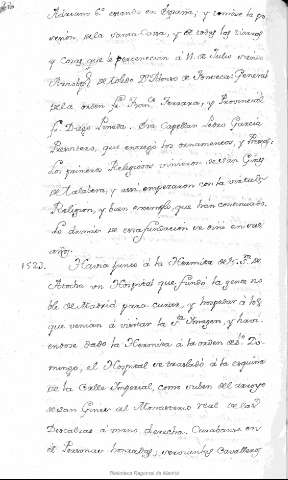 Adriano 6º estando en España; y tomòse la po-
sesion de la Santa Casa, y de todos los vienes
y cosas que le pertenecian à 11 de Julio siendo
Arzobispo de Toledo Dn Alonso de Fonseca: General
de la orden fr. Franco
y Provincial
fr. Diego
Era Capellan Pedro Garcia
que entregò los ornamentos, y
Los primeros Religiosos vinieron de San Gines
de Talabera, y asi empezaron con la
Religion, y buen exemplo que han continuado.
Lo demas de esta fundacion se dirà en sus
años.
1523. Havia junto à la Hermita de N. Sra. de
Atocha un Hospital que fundò la gente no-
ble de Madrid para curar, y hospedar à los
que venian à visitar la Sta Imagen, y havi-
endose dado la Hermita à la orden de Sto Do-
mingo, el Hospital se trasladò à la esquina
de la Calle Imperial, como suben del arroyo
de San Gines al Monasterio Real de las
Descalzas à mano derecha. Curabanse en
el Personas honradas,
Cavalleros
Biblioteca Regional de Madrid